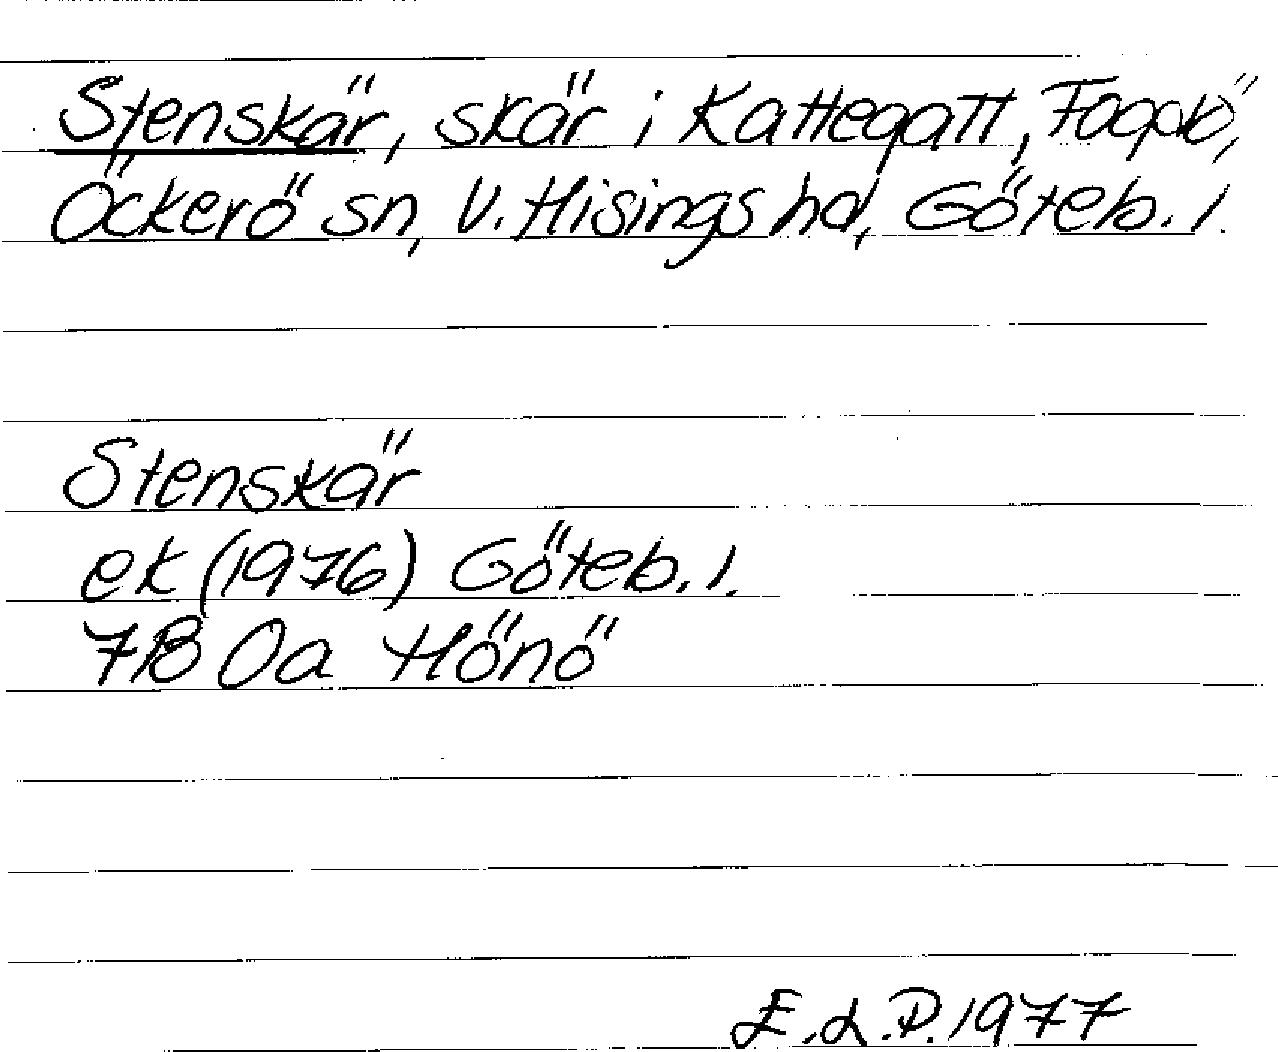 Stenskär, skär i Kattegatt, Fogdö,
Öckerö sn, V. Hisings hd, Göteb. l.
Stenskär
ek (1976) Göteb. l.
7B 0a Hönö
E.L.P. 1977